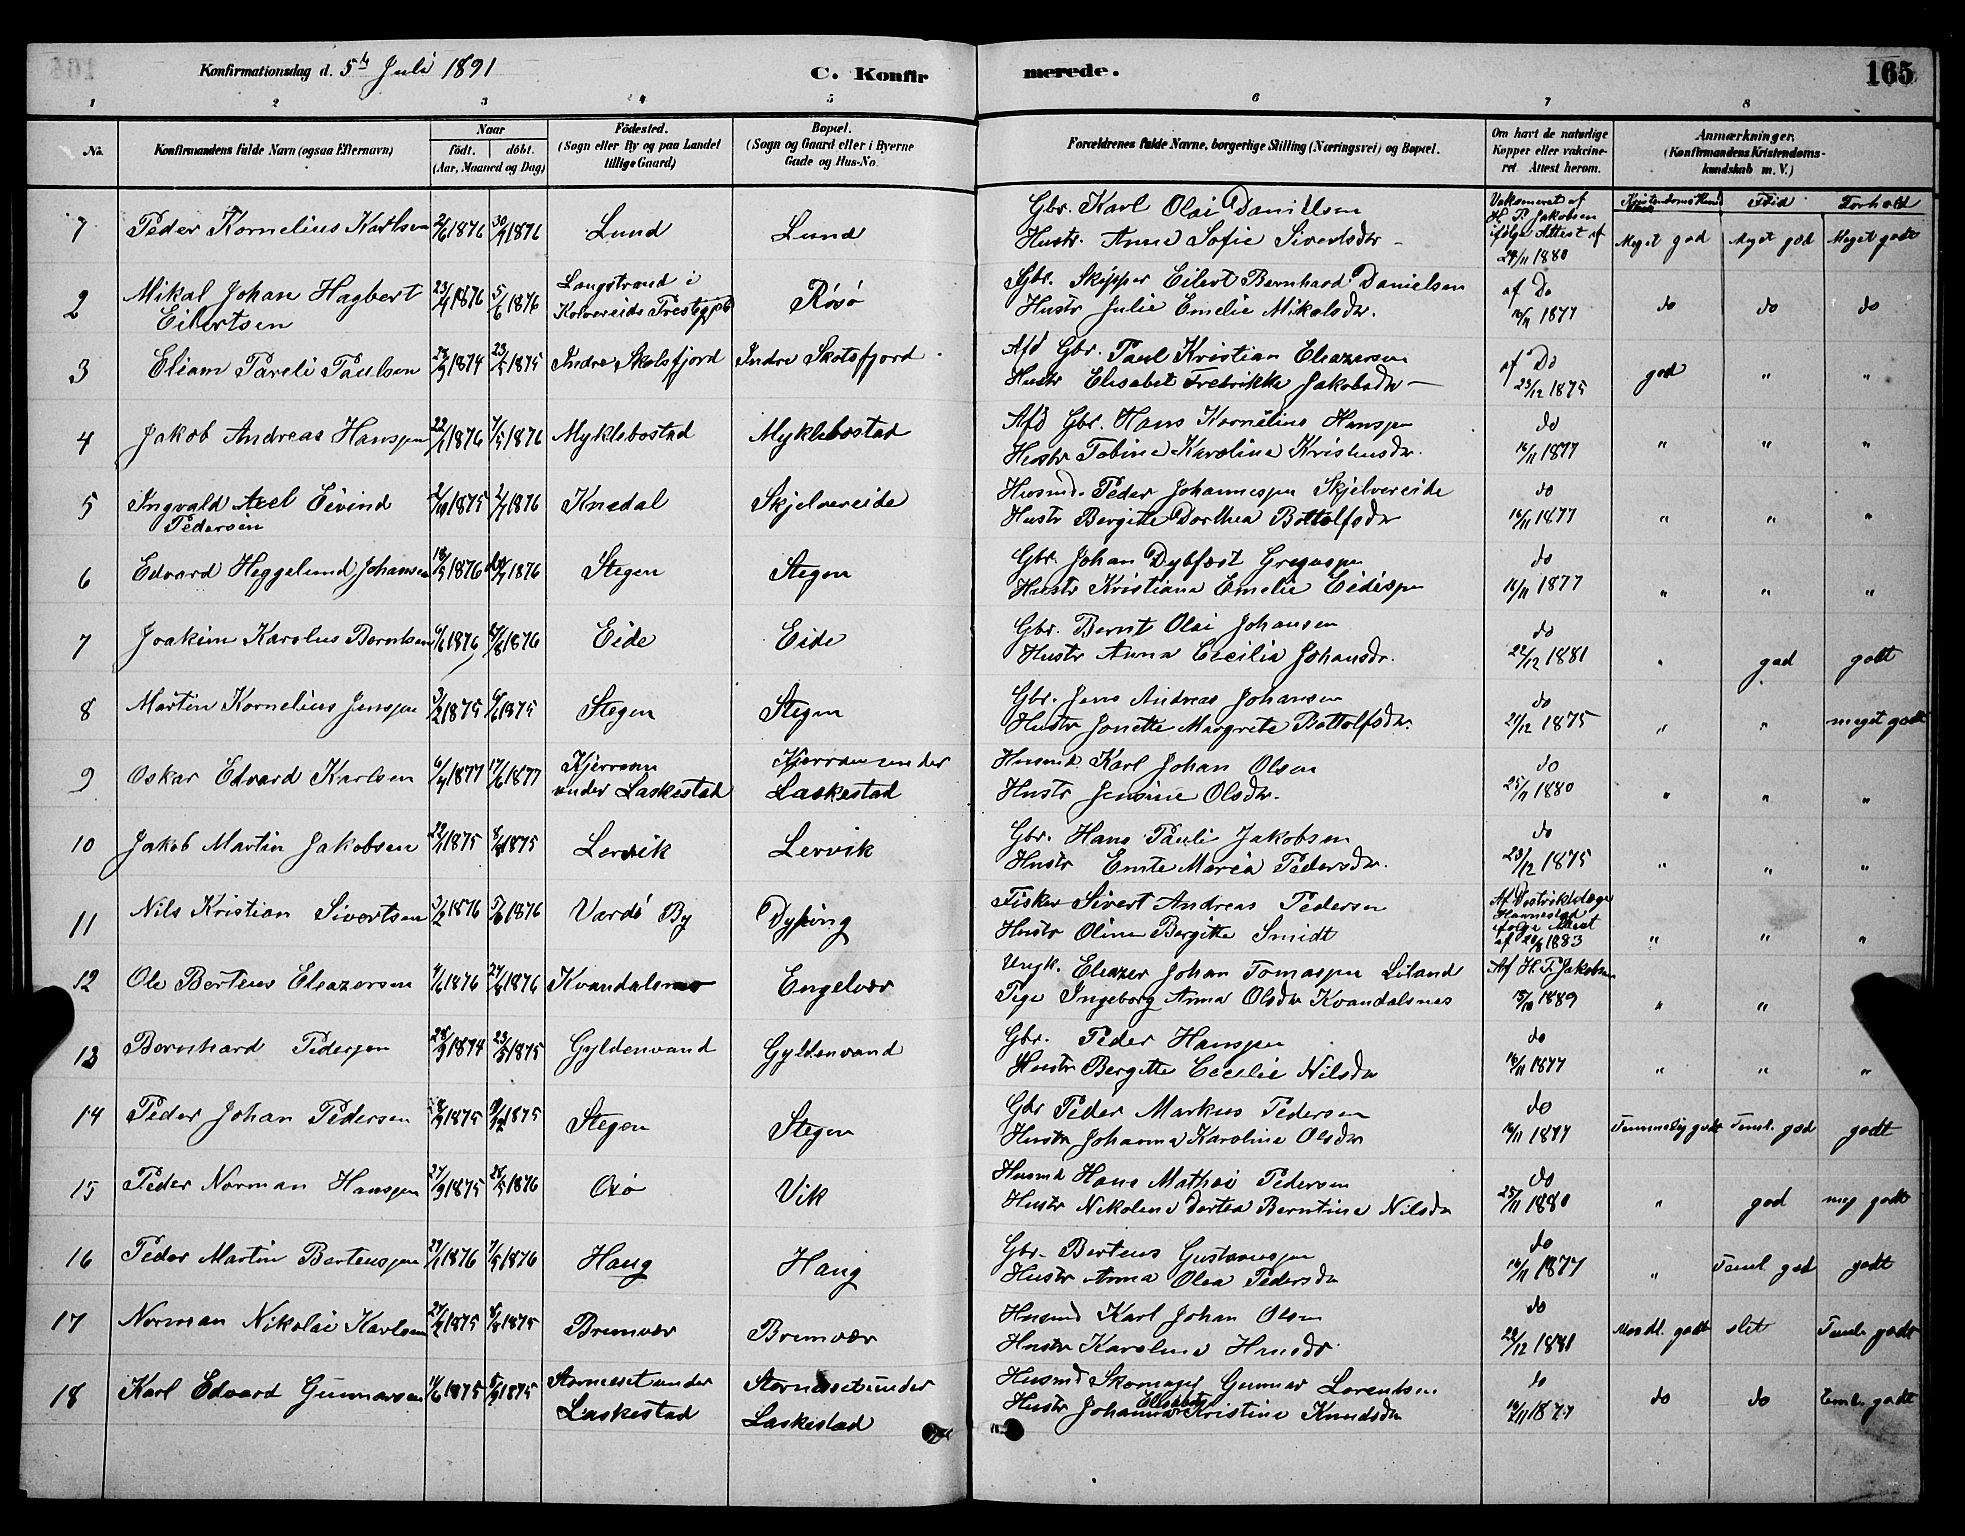 Konfirmationsdag d. 5te Juli 1891
C. Konfirmerede.
165
1 2 3 4 5 6 7 8
No.
Konfirmandens fulde Navn (ogsaa Efternavn)
Naar
födt. döbt.
(Aar, Maaned og Dag)
Födested.
(Sogn eller By og paa Landet
tillige Gaard)
Bopæl.
(Sogn og Gaard eller i Byerne
Gade og Hus-No.
Forældrenes fulde Navne, borgerlige Stilling (Næringsvei) og Bopæl.
Om havt de naturlige
Kopper eller vakcine-
ret Attest herom.
Anmærkninger.
(Konfirmandens Kristendoms-
kundskab m. V.)
Flid Forhold
7 Peder Kornelius Karlsen 1876 1876 Lund Lund
Gbr. Karl Olai DaniElsen
Hustr. Anne Sofie Sivertsdtr
H. P. Jakobsen
ifølge Attest af
24/11 1880
Meget god Meget god Meget godt
2 Mikal Johan Hagbert
Eilertsen
23/4 1876 5/6 1876
Langstrand i
Kolvereids Prestegjeld
Rösö
Gbr. Skipper Eilert Bernhard Danielsen
Hustr Julie Emelie Mikalsdtr.
af Do
16/11 1877
do do do
3 Eliam Pareli Paulsen 1874 23/5 1875 Indre Skotsfjord Indre Skotsfjord
Afd Gbr. Paul Kristian Eleazersen
Hustr Elisabet Fredrikke Jakobsdtr
af Do
23/12 1875
god " "
4 Jakob Andreas Hanssen 22/1 1876 7/5 1876 Myklebostad Myklebostad
Afd Gbr. Hans Kornelius Hanssen
Hustr Tobine Karoline Kristensdtr.
do
16/11 1877
" " "
5 Ingvald Axel Eivind
Pedersen
1875 2/7 1876 Knedal Skjelvereide
Husmd. Peder Johannessen Skjelvereide
Hustr Bergitte Dorthea Bottolfsdtr
do
16/11 1877
" " "
6 Edvard Heggelund Johansen 18/5 1876 1876 Stegen Stegen
Gbr. Johan Dybfest Gregussen
Hustr Kristiana Emelie Eidissen
do
16/11 1877
" " "
7 Joakim Karolus Berntsen 6/6 1876 1876 Eide Eide
Gbr. Bernt Olai Johansen
Hustr Anna Cecilia Johansdtr.
do
22/12 1881
" god godt
8 Martin Kornelius Jenssen 3/2 1875 6/6 1875 Stegen Stegen
Gbr. Jens Andreas Johansen
Hustr Jonette Margrete Bottolfsdtr.
do
21/12 1875
" " meget godt
9 Oskar Edvard Karlsen 6/4 1877 17/6 1877
Kjerraen
under Laskestad
Kjerraen under
Laskestad
Husmd Karl Johan Olsen
Hustr Jensine Olsdtr.
do
25/11 1880
" " "
10 Jakob Martin Jakobsen 1875 1875 Lervik Lervik
Gbr. Hans Pauli Jakobsen
Hustr Emte Maria Pedersdtr.
do
23/12 1875
" " "
11 Nils Kristian Sivertsen 3/2 1876 5/6 1876 Vardö By Dyping
Fisker Sivert Andreas Pedersen
Hustr Oline Bergitte Smidt
Af Distriktslæge
ifølge Attest
af 1883
" " "
12 Ole Bertens Eleazersen 4/6 1876 1876 Kvandalsnes Engelvær
Ungk. Eleazer Johan Tomassen Liland
Pige Ingeborg Anna Olsdtr Kvandalsnes
Af H. P. Jakobsen
15/10 1889
" "
13 Bernhard Pedersen 28/9 1874 23/5 1875 Gyldenvand Gyldenvand
Gbr. Peder Hanssen
Hustr Bergitte Cecilie Nilsdtr
do
16/11 1877
" " "
14 Peder Johan Pedersen 1875 1875 Stegen Stegen
Gbr Peder Markus Pedersen
Hustr Johanna Karoline Olsdtr
do
16/11 1877
Temmelig godt Teml. god godt
15 Peder Norman Hanssen 27/9 1875 28/5 1876 Oxö Vik
Husmd Hans Mathæi Pedersen
Hustr Nikoline Dortea Berntine Nilsdtr
do
25/11 1880
" god meg godt
16 Peder Martin Bertenssen 1876 7/5 1876 Haug Haug
Gbr. Bertens Gustavussen
Hustr Anna Olea Pedersdtr
do
16/11 1877
" Teml god godt
17 Norman Nikolai Karlsen 1875 1875 Bremvær Bremvær
Husmd Karl Johan Olsen
Hustr Karoline Hansdtr
do
22/12 1881
Maadl. godt slet Teml. godt
18 Karl Edvard Gunnarsen 11/6 1875 5/9 1875
Storneset under
Laskestad
Storneset under
Laskestad
Husmd Skomager Gunnar Lorentsen
Hustr Johanna Ellisabet Kristine Knudsdtr
do
16/11 1877
do do Teml. godt